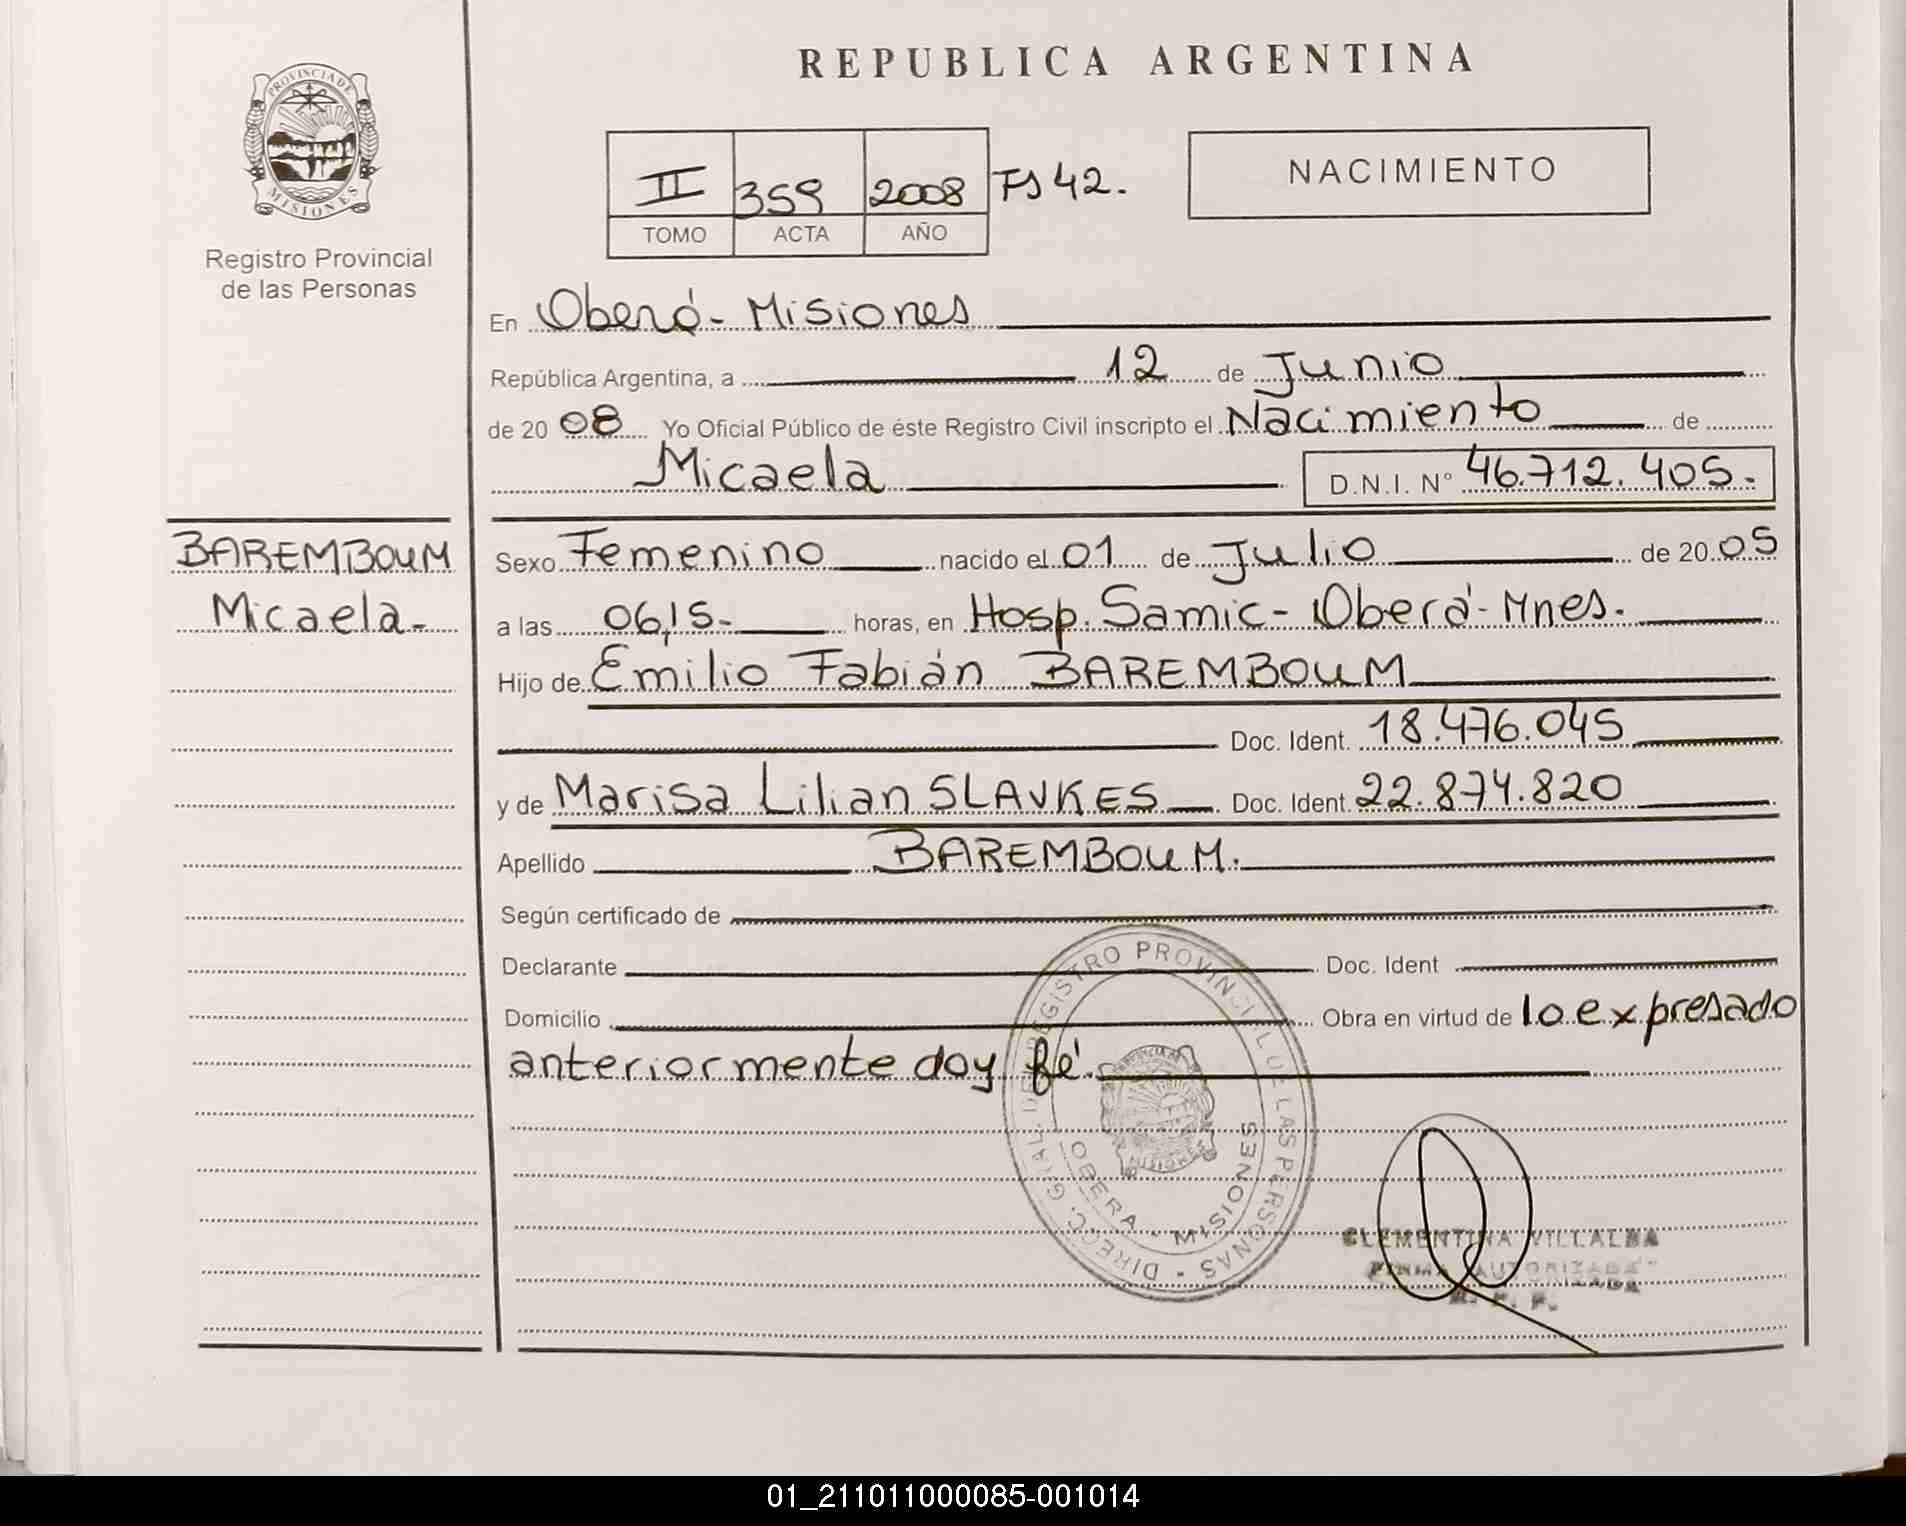 REPUBLICA ARGENTINA
PROVINCIA DE MISIONES
Registro Provincial
de las Personas
II 359 2008 Fs 42.
TOMO ACTA AÑO
NACIMIENTO
En Oberá - Misiones
República Argentina, a 12 de Junio
de 2008 Yo Oficial Público de éste Registro Civil inscripto el Nacimiento de
Micaela D.N.I. N° 46.712.405.-
BAREMBOUM
Micaela-
Sexo Femenino nacido el 01 de Julio de 2005
a las 06,15- horas, en Hosp. Samic - Oberá - Mnes.
Hijo de Emilio Fabián BAREMBOUM
Doc. Ident. 18.476.045
y de Marisa Lilian SLAVKES Doc. Ident. 22.874.820
Apellido BAREMBOUM.
Según certificado de
Declarante Doc. Ident
Domicilio Obra en virtud de lo expresado
anteriormente doy fé.
DIRECC. GRAL. DE REGISTRO PROVINCIAL DE LAS PERSONAS
OBERA - MISIONES
MISIONES
CLEMENTINA VILLALBA
FIRMA AUTORIZADA
R. P. P.
01_211011000085-001014